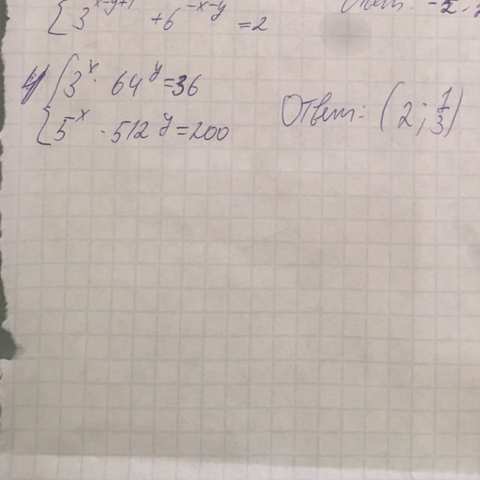 { 3^{x-y+1} + 6^{-x-y} = 2
4) { 3^x · 64^y = 36
{ 5^x · 512^y = 200
Ответ: (2; 1/3)